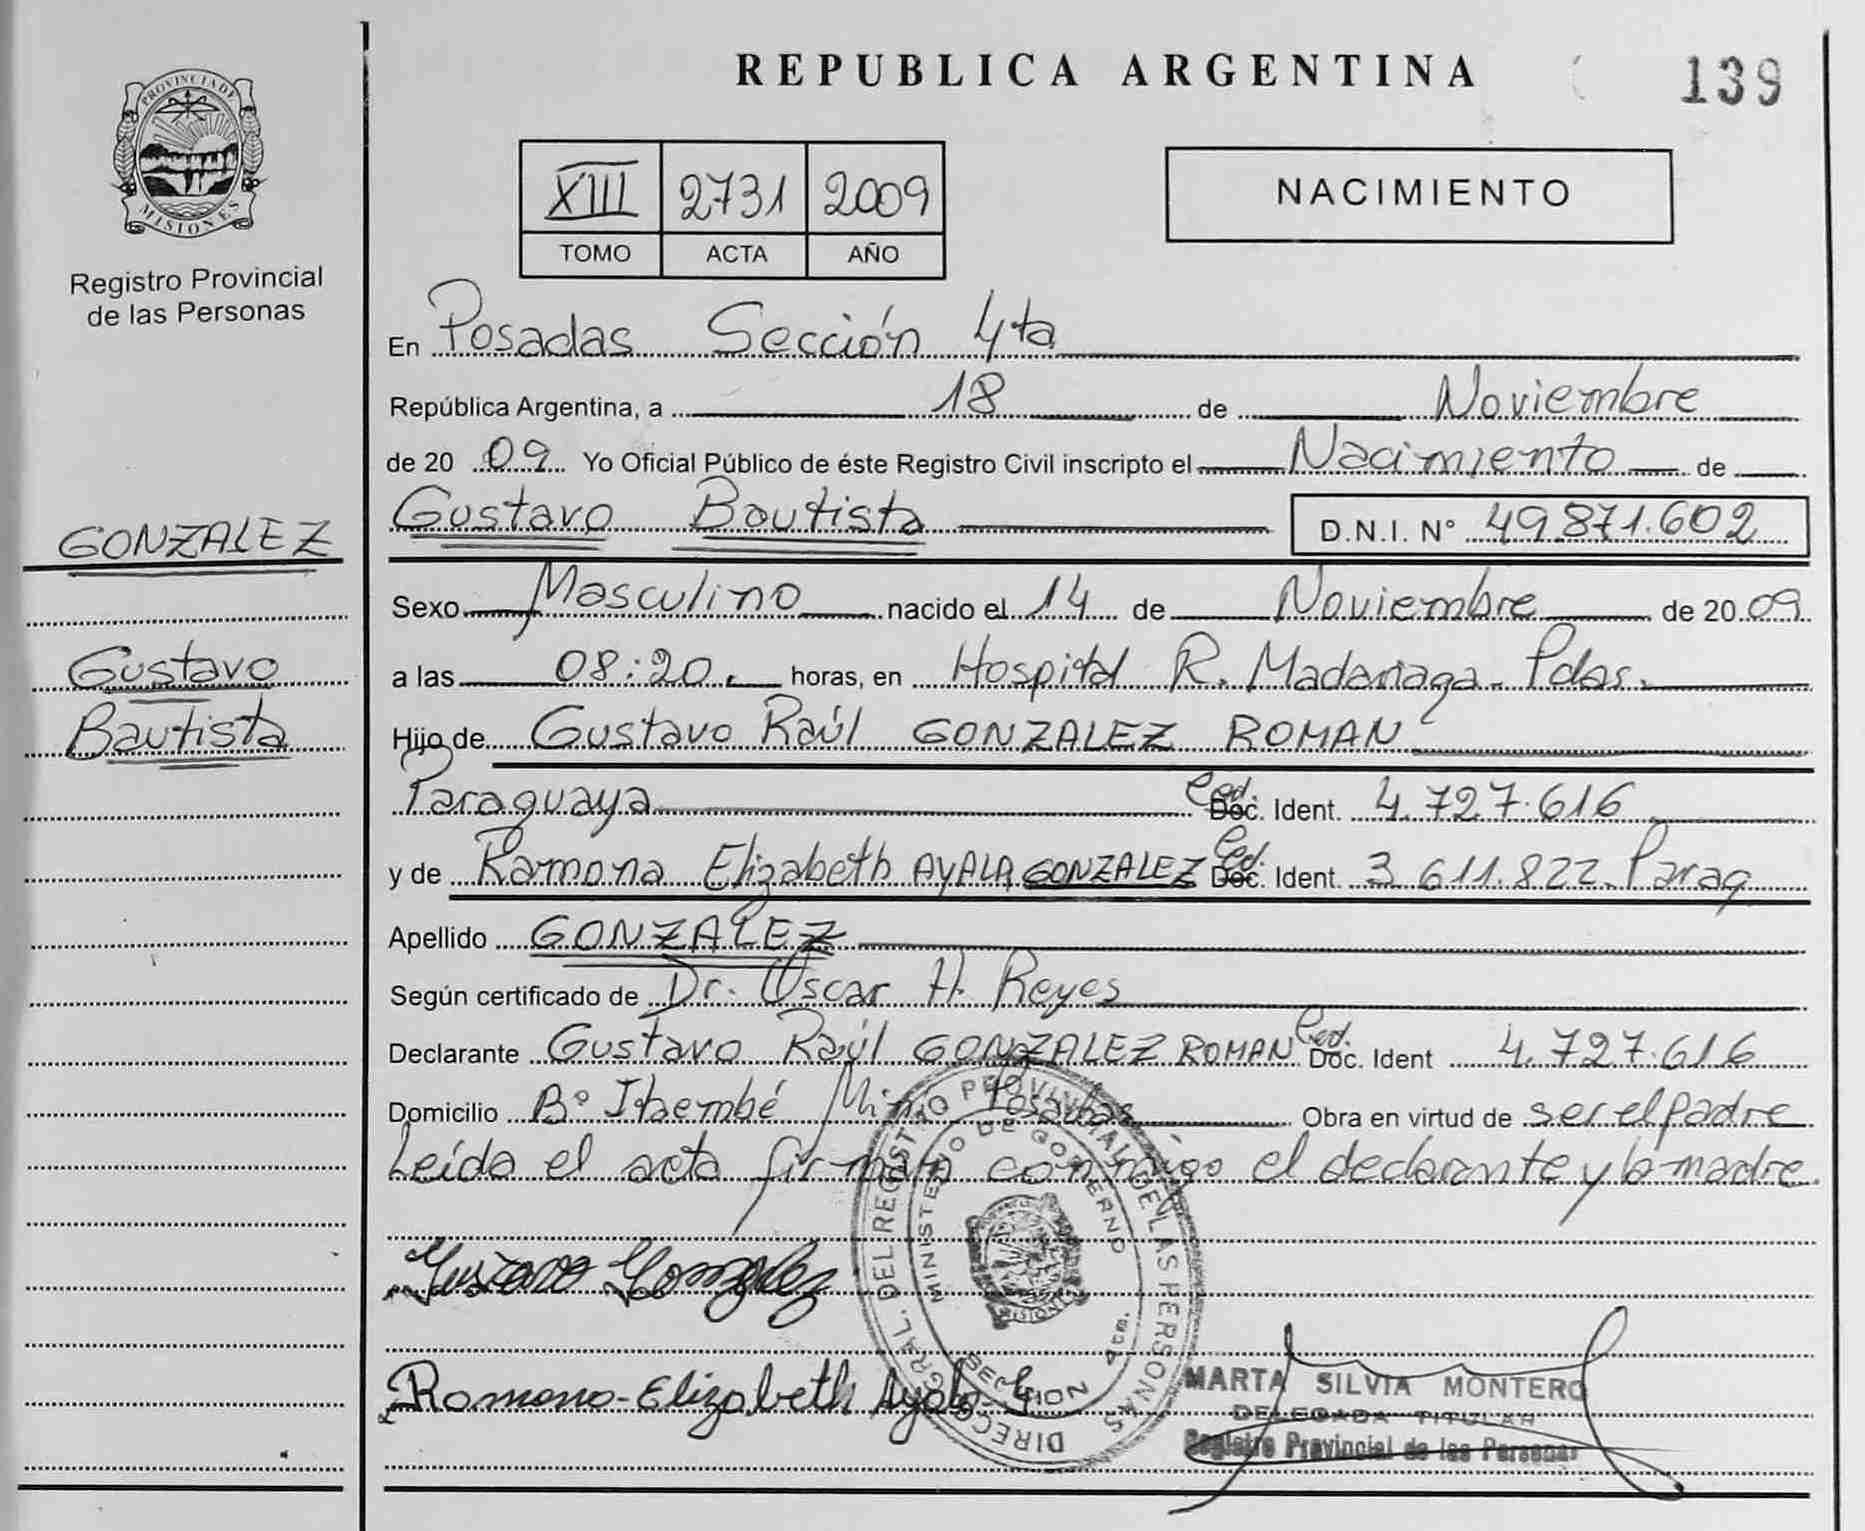 REPUBLICA ARGENTINA
139
PROVINCIA DE
MISIONES
Registro Provincial
de las Personas
XIII 2731 2009
TOMO ACTA AÑO
NACIMIENTO
En Posadas Sección 4ta
República Argentina, a 18 de Noviembre
de 20 09 Yo Oficial Público de éste Registro Civil inscripto el Nacimiento de
Gustavo Bautista D.N.I. Nº 49.871.602
GONZALEZ
Gustavo
Bautista
Sexo Masculino nacido el 14 de Noviembre de 20 09
a las 08:20. horas, en Hospital R. Madariaga. Pdas.
Hijo de Gustavo Raúl GONZALEZ ROMAN
Paraguaya Ced. Doc. Ident. 4.727.616
y de Ramona Elizabeth AYALA GONZALEZ Ced. Doc. Ident. 3.611.822 Parag
Apellido GONZALEZ
Según certificado de Dr. Oscar H. Reyes
Declarante Gustavo Raúl GONZALEZ ROMAN Ced. Doc. Ident 4.727.616
Domicilio Bº Itaembé Miní Posadas Obra en virtud de ser el padre
Leída el acta firman conmigo el declarante y la madre.
Gustavo Gonzalez
Ramona-Elizabeth Ayala G
DIREC. GRAL. DEL REGISTRO PROVINCIAL DE LAS PERSONAS
MINISTERIO DE GOBIERNO
MISIONES
SECCION 4 ta.
MARTA SILVIA MONTERO
DELEGADA TITULAR
Registro Provincial de las Personas